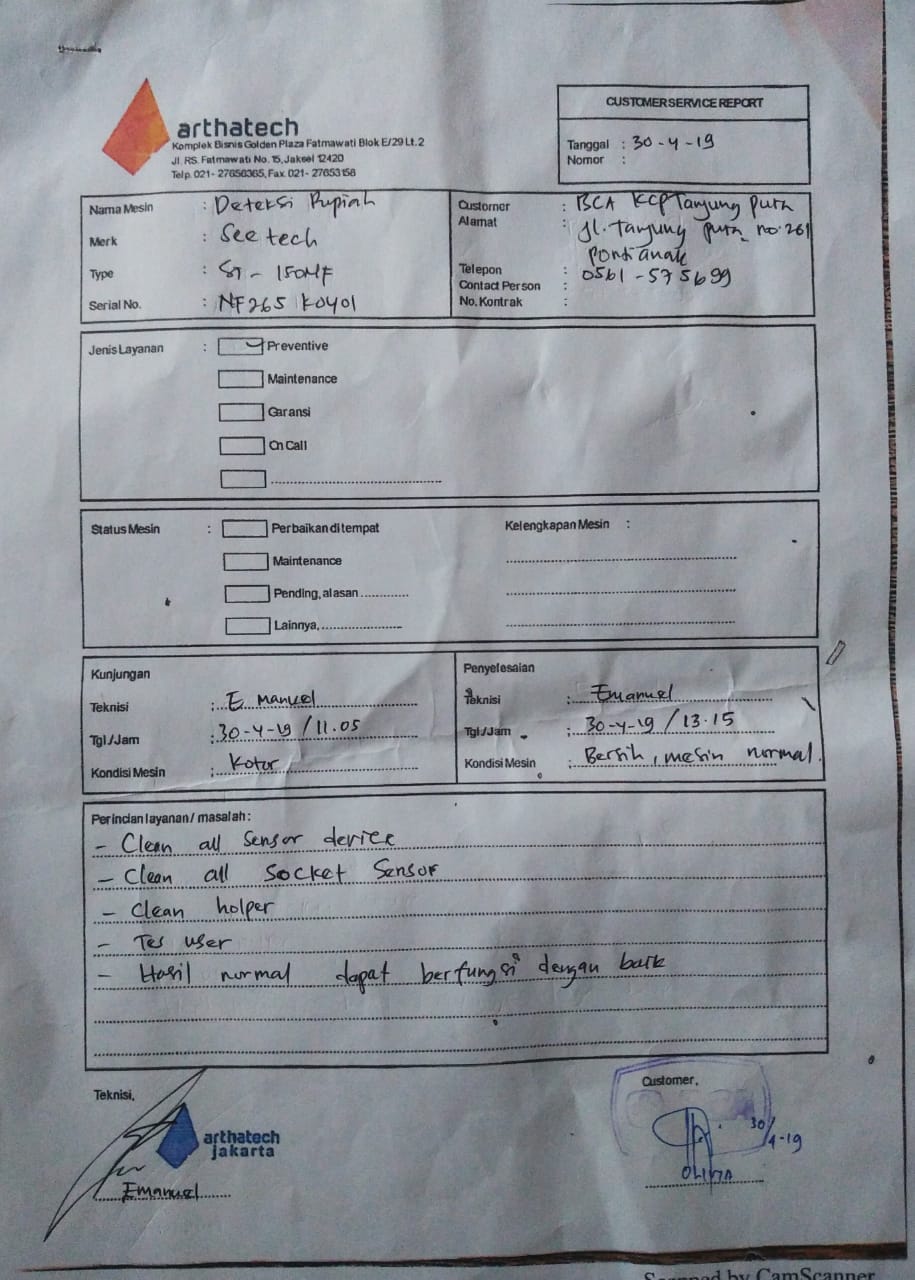 arthatech
Komplek Bisnis Golden Plaza Fatmawati Blok E/29 Lt. 2
Jl. RS. Fatmawati No. 15, Jaksel 12420
Telp. 021- 27656365, Fax. 021- 27653158
CUSTOMER SERVICE REPORT
Tanggal : 30-4-19
Nomor :
Nama Mesin : Deteksi Rupiah
Merk : Seetech
Type : ST - 150MF
Serial No. : NF265 K0401
Customer : BCA KCP Tanjung Pura
Alamat : Jl. Tanjung pura no. 261
pontianak
Telepon : 0561 - 575699
Contact Person :
No. Kontrak :
Jenis Layanan : Preventive
Maintenance
Garansi
On Call
Status Mesin : Perbaikan di tempat
Maintenance
Pending, alasan
Lainnya,
Kelengkapan Mesin :
Kunjungan
Teknisi : Emanuel
Tgl/Jam : 30-4-19 / 11.05
Kondisi Mesin : Kotor
Penyelesaian
Teknisi : Emanuel
Tgl/Jam : 30-4-19 / 13.15
Kondisi Mesin : Bersih, mesin normal.
Perincian layanan / masalah :
- Clean all sensor device
- Clean all Socket Sensor
- Clean holper
- Tes user
- Hasil normal dapat berfungsi dengan baik
Teknisi,
arthatech
jakarta
Emanuel
Customer,
30/4-19
OLIVIA
Scanned by CamScanner